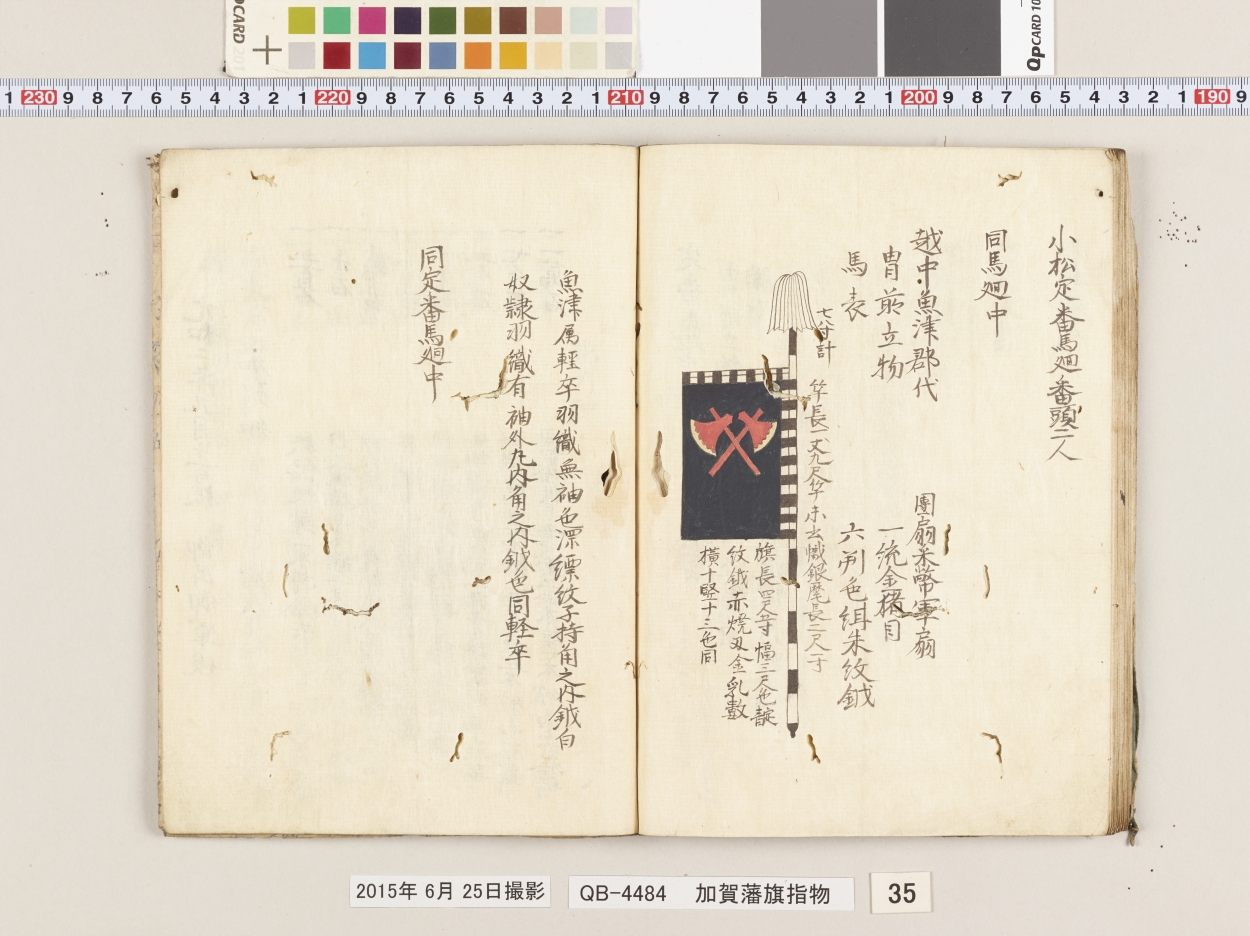 QpCARD 10
1 230 9 8 7 6 5 4 3 2 1 220 9 8 7 6 5 4 3 2 1 210 9 8 7 6 5 4 3 2 1 200 9 8 7 6 5 4 3 2 1 190 9
小松定番馬廻番頭二人
同馬廻中
越中魚津郡代
團扇朱幣軍扇
冑前立物
一統金猪目
馬表
六幅色緋朱紋鉞
七八寸計
竿長一丈九尺竿末出幟銀麾長二尺一寸
旗長四尺寸幅三尺色靛
紋鉞赤焼刃金乳數
横十竪十三色同
魚津属軽卒羽織無袖色深縹紋子持角之内鉞白
奴隷羽織有袖外九内角之内鉞色同軽卒
同定番馬廻中
2015年 6月 25日撮影
QB-4484 加賀藩旗指物
35